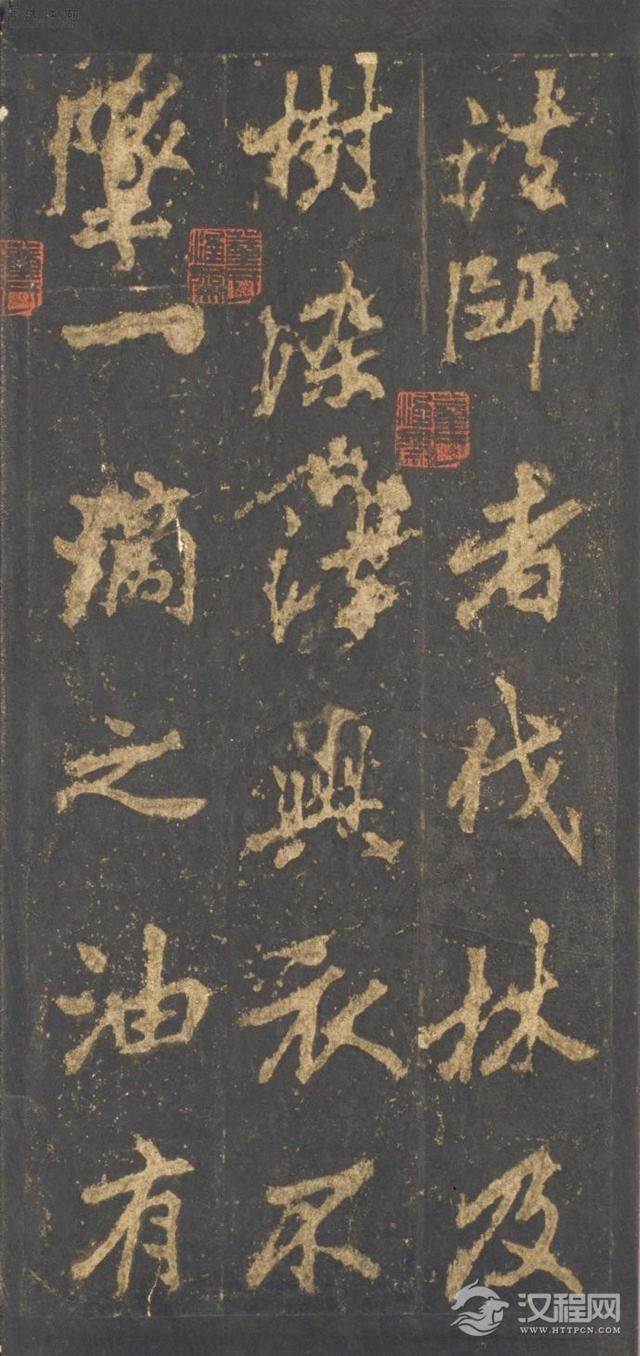 法師者伐林及
樹染與衣不
墜一滴之油有
汉程网
WWW.HTTPCN.COM